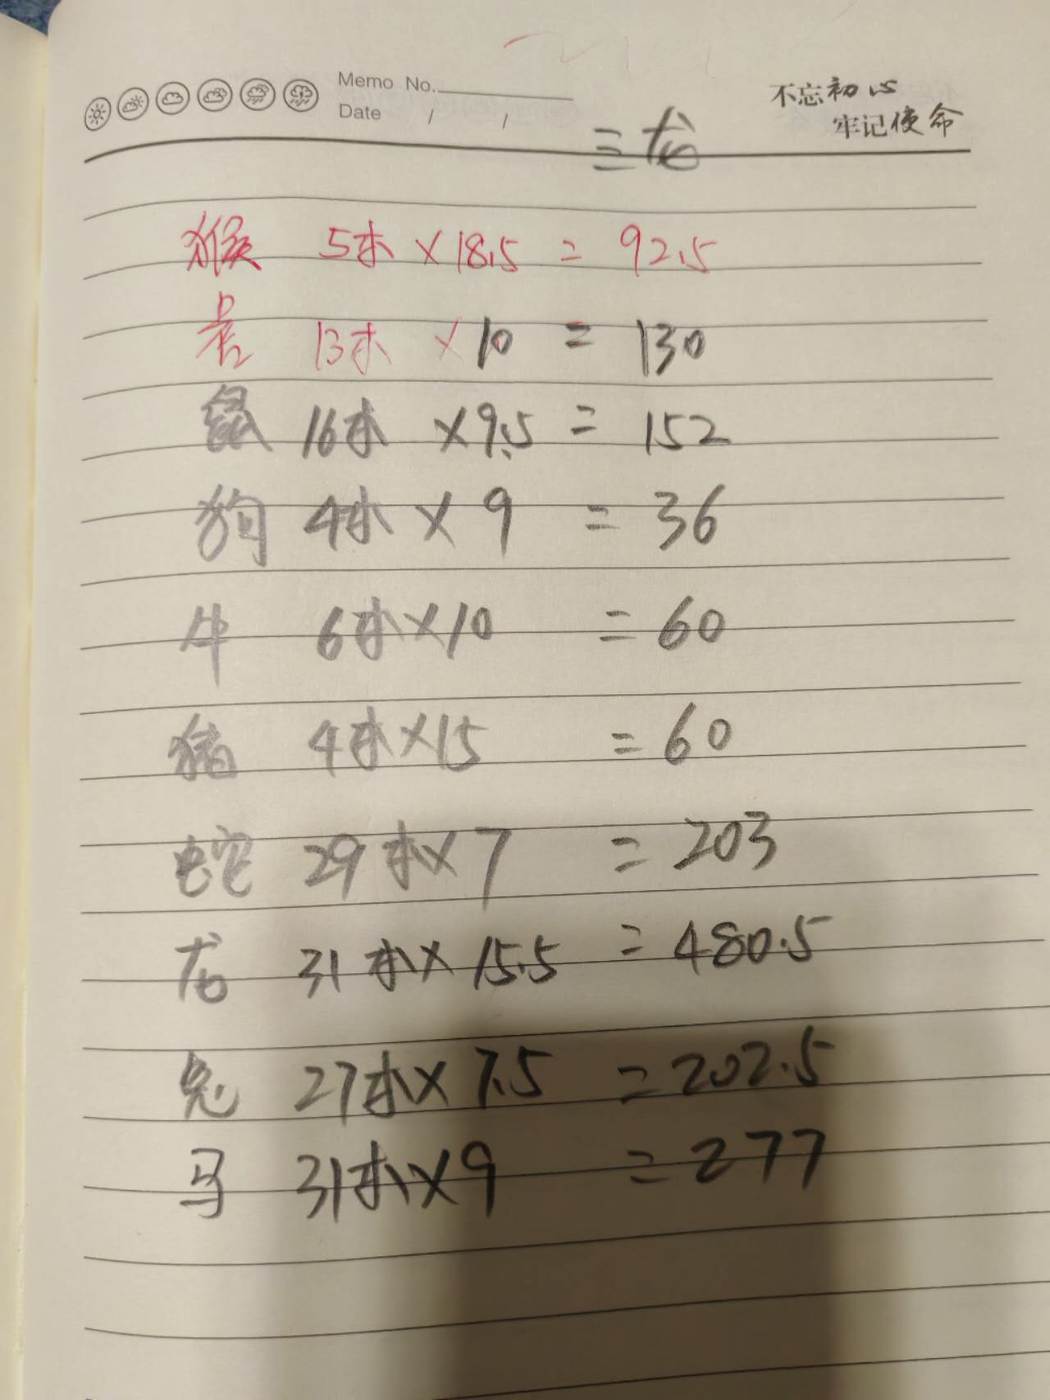 Memo No.
Date / /
不忘初心
牢记使命
三龙
猴 5本×18.5=92.5
13本×10=130
鼠 16本×9.5=152
狗 4本×9=36
牛 6本×10=60
猪 4本×15=60
蛇 29本×7=203
龙 31本×15.5=480.5
兔 27本×7.5=202.5
马 31本×9=277